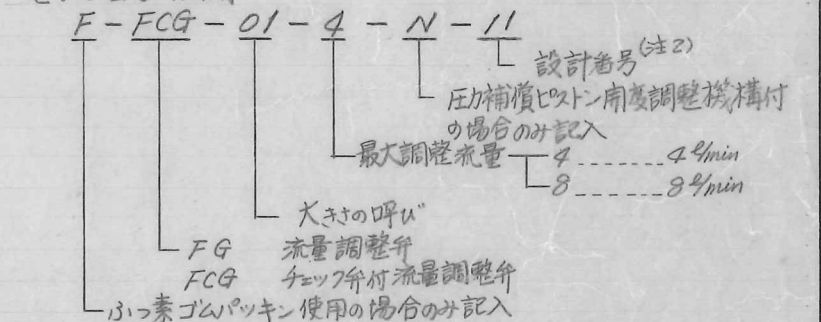 F-FCG-01-4-N-11
設計番号(注2)
圧力補償ピストン開度調整機構付
の場合のみ記入
最大調整流量 4 ------ 4ℓ/min
8 ------ 8ℓ/min
大きさの呼び
FG 流量調整弁
FCG チェック弁付流量調整弁
ふっ素ゴムパッキン使用の場合のみ記入